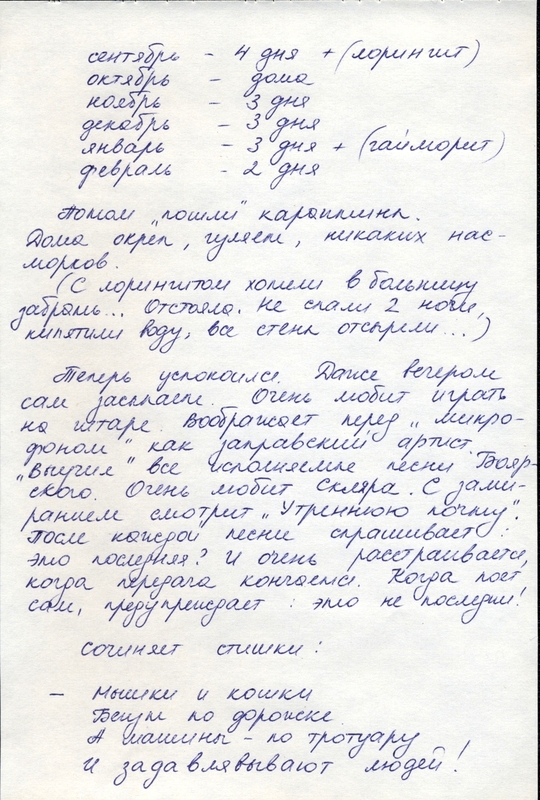 сентябрь - 4 дня + (лорингит)
октябрь - дома
ноябрь - 3 дня
декабрь - 3 дня
январь - 3 дня + (гайморит)
февраль - 2 дня
Потом „пошли" карантины.
Дома окреп, гуляет, никаких нас-
морков.
(С лорингитом хотели в больницу
забрать... Отстояла. Не спали 2 ночи,
кипятили воду, все стены отсырели...)
Теперь успокоился. Даже вечером
сам засыпает. Очень любит играть
на гитаре. Воображает перед „микро-
фоном" как заправский артист.
„Выучил" все исполняемые песни Бояр-
ского. Очень любит Скляра. С зами-
ранием смотрит „Утреннюю почту".
После каждой песни спрашивает:
это последняя? И очень расстраивается,
когда передача кончается. Когда поёт
сам, предупреждает: это не последняя!
Сочиняет стишки:
- Мышки и кошки
Бегут по дорожке
А машины - по тротуару
И задавлявывают людей!